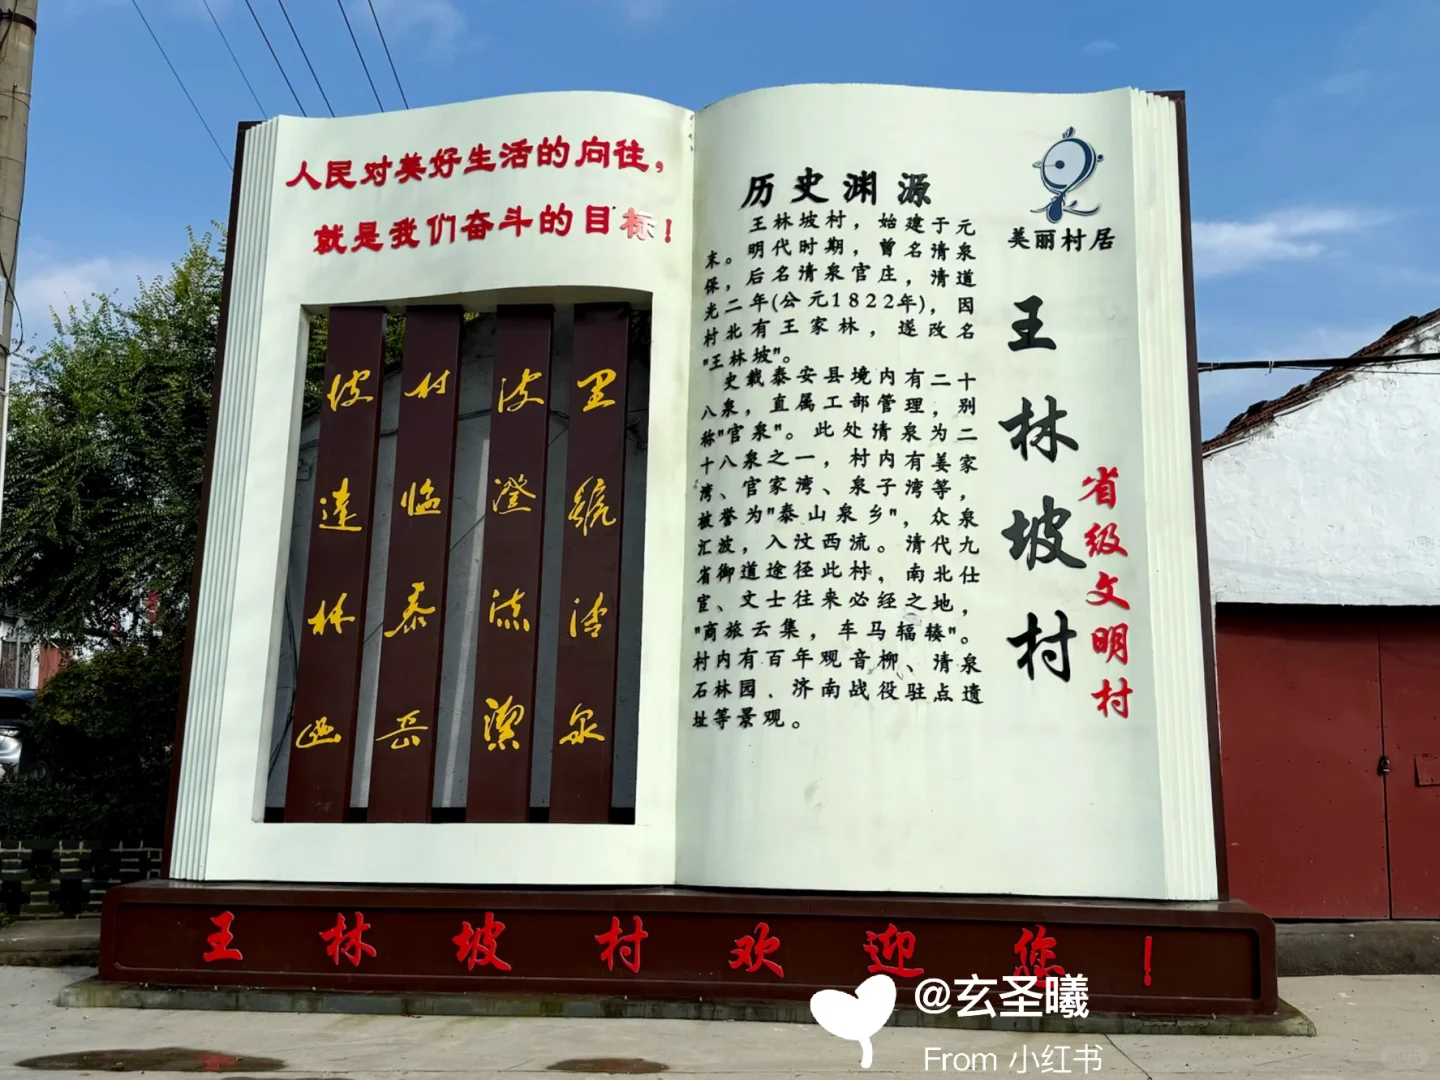 人民对美好生活的向往，
就是我们奋斗的目标！
里號清泉
波澄流潔
村臨泰岳
坡遠林幽
历史渊源
王林坡村，始建于元
末。明代时期，曾名清泉
保，后名清泉官庄，清道
光二年(公元1822年)，因
村北有王家林，遂改名
"王林坡"。
史载泰安县境内有二十
八泉，直属工部管理，别
称"官泉"。此处清泉为二
十八泉之一，村内有姜家
湾、官家湾、泉子湾等，
被誉为"泰山泉乡"，众泉
汇波，入汶西流。清代九
省御道途径此村，南北仕
宦、文士往来必经之地，
"商旅云集，车马辐辏"。
村内有百年观音柳、清泉
石林园、济南战役驻点遗
址等景观。
美丽村居
王林坡村
省级文明村
王林坡村欢迎您！
@玄圣曦
From 小红书